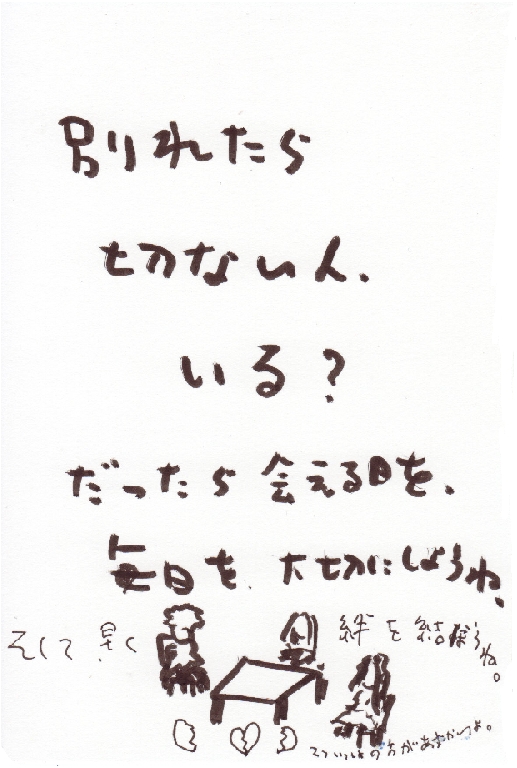 別れたら
切ない人.
いる?
だったら会える日を.
毎日を.大切にしようね。
そして早く 絆を結ぼうね。
の方があ